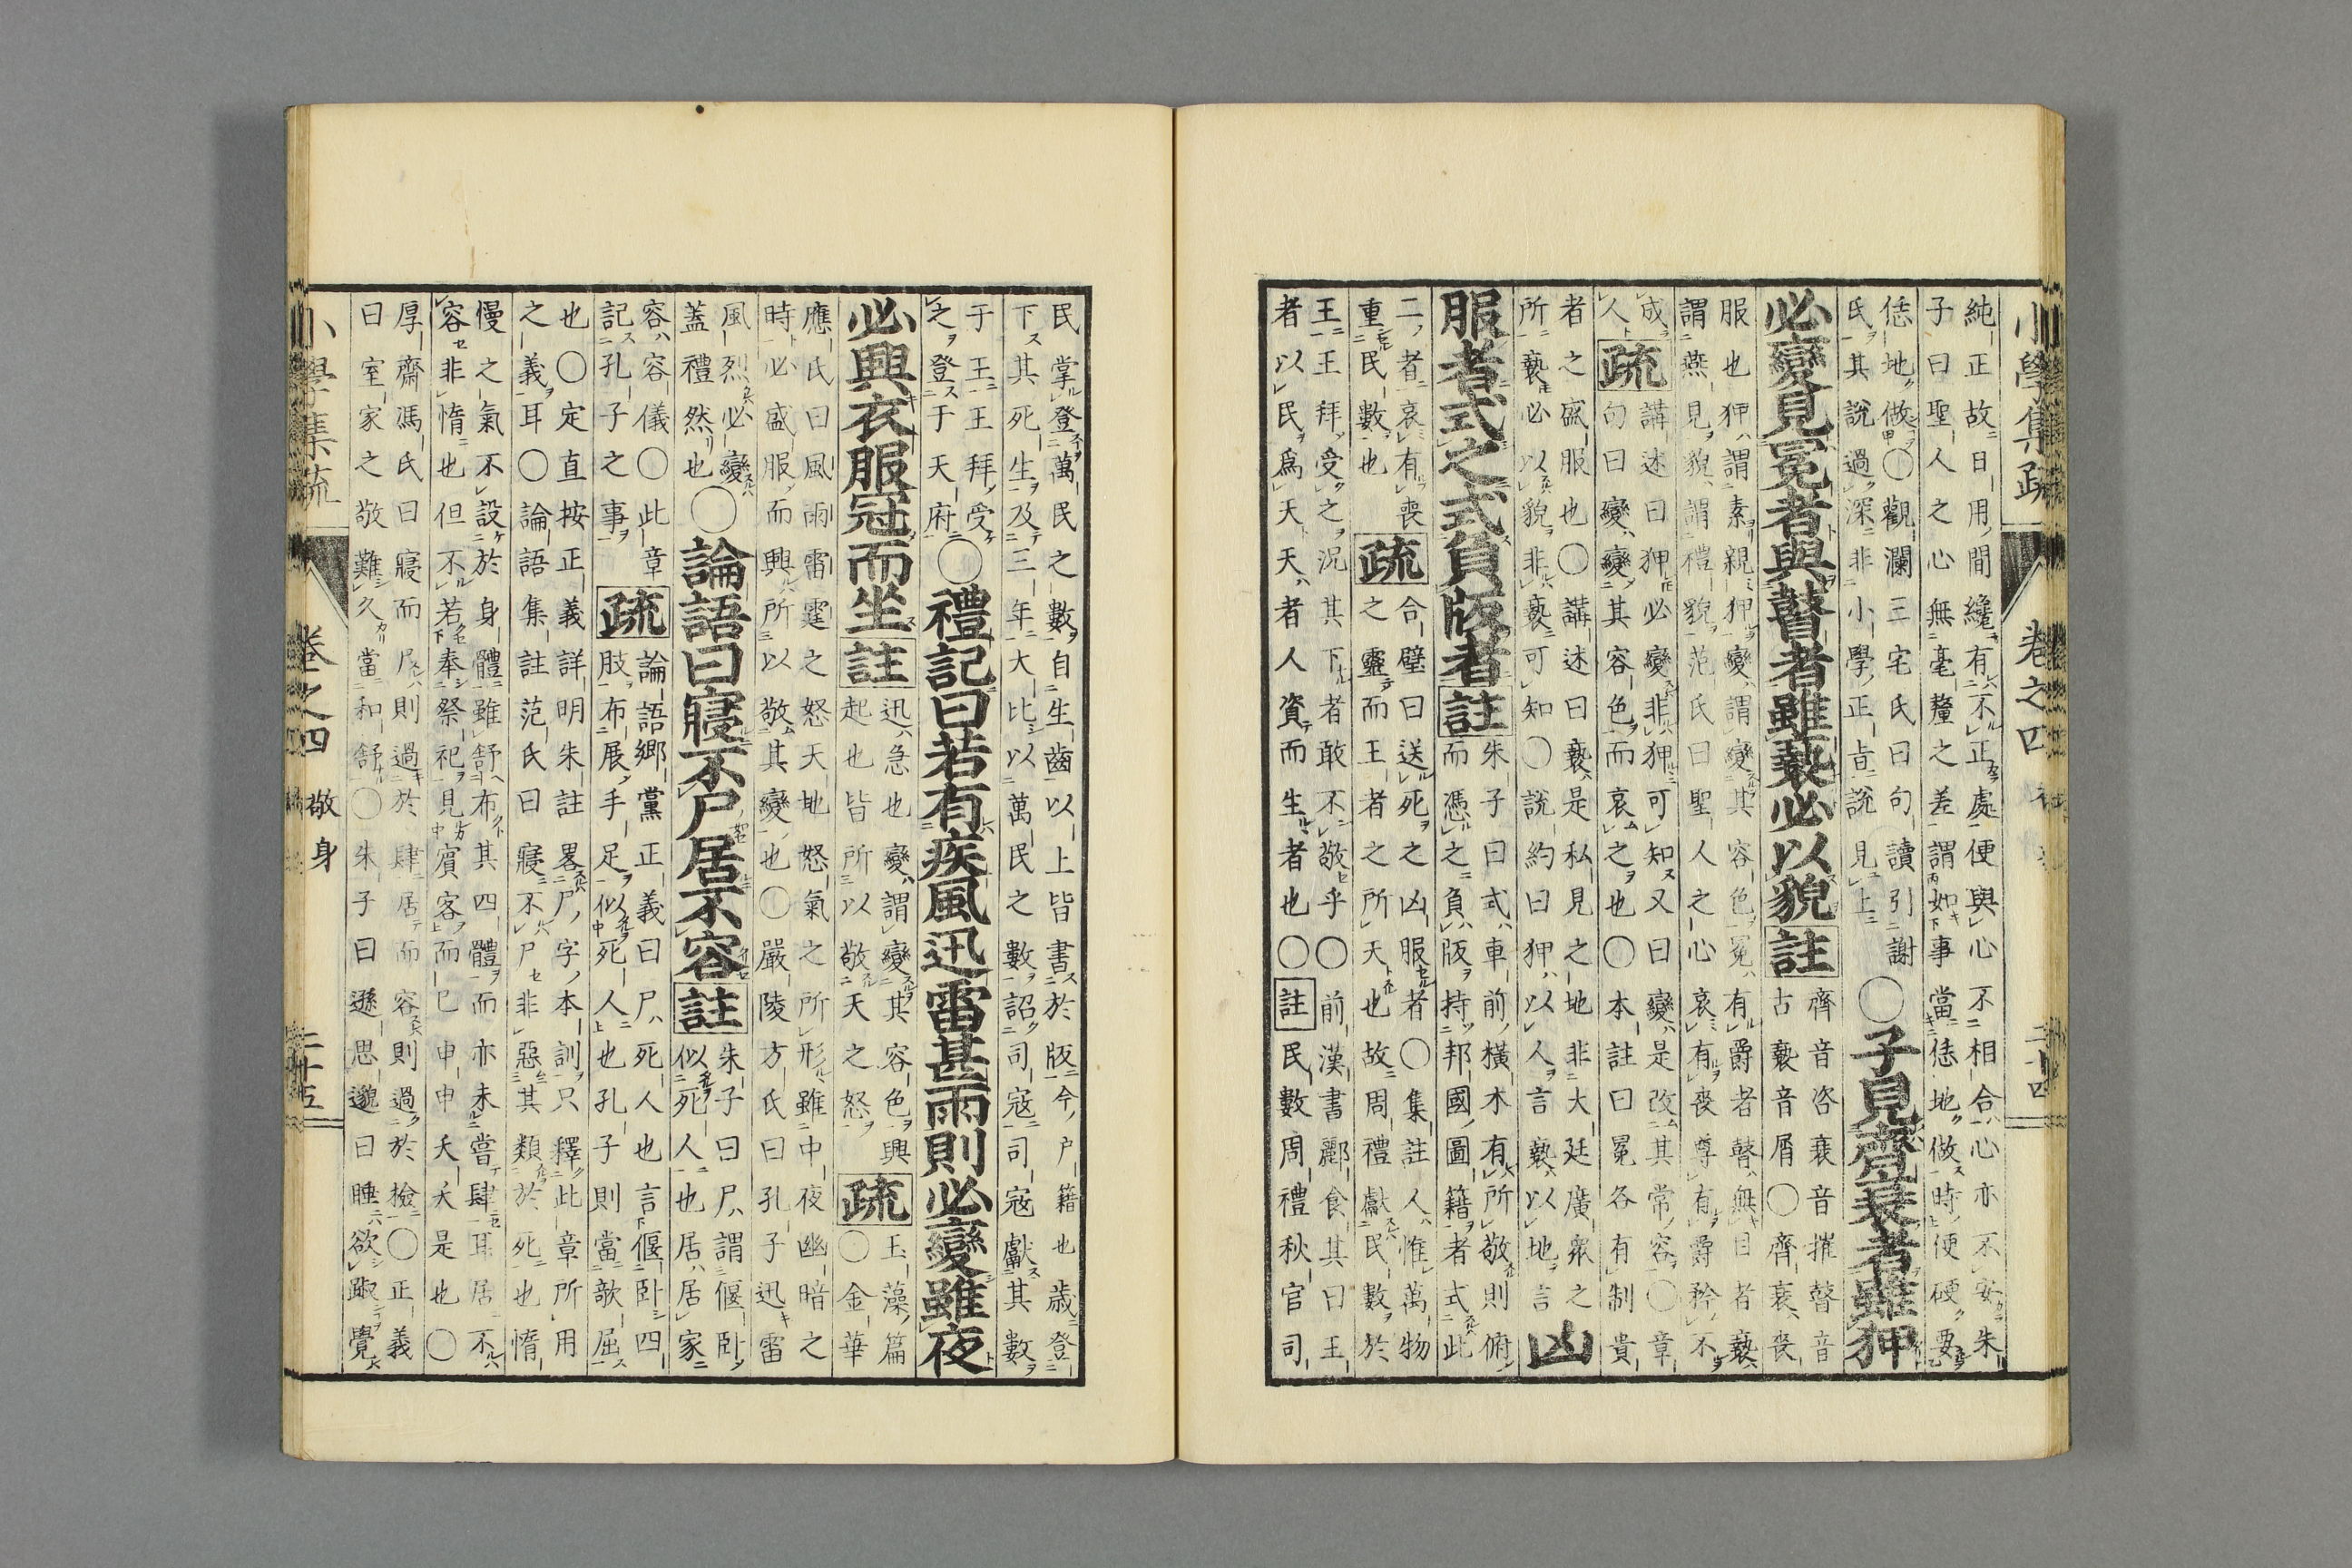 小學集疏 卷之四 二十四
純正故日用間纔有不正處便與心不相合心亦不安朱
子曰聖人之心無毫釐之差謂如事當恁地做時便硬要
恁地做○觀瀾三宅氏曰句讀引謝
氏其說過深非小學正旨說見上
○子見齊衰者雖狎
必變見冕者與瞽者雖褻必以貌註
齊音咨衰音摧瞽音
古褻音屑○齊衰喪
服也狎謂素親狎變謂變其容色冕有爵者瞽無目者褻
謂燕見貌謂禮貌范氏曰聖人之心哀有喪尊有爵矜不
成人疏
講述曰狎必變非狎可知又曰變是改其常容○章
句曰變變其容色而哀之也○本註曰冕各有制貴
者之盛服也○講述曰褻是私見之地非大廷廣衆之
所褻必以貌非褻可知○說約曰狎以人言褻以地言
凶
服者式之式負版者註
朱子曰式車前橫木有所敬則俯
而憑之負版持邦國圖籍者式此
二者哀有喪
重民數也
疏
合璧曰送死之凶服者○集註人惟萬物
之靈而王者之所天也故周禮獻民數於
王王拜受之況其下者敢不敬乎○前漢書酈食其曰王
者以民爲天天者人資而生者也○註民數周禮秋官司
民掌登萬民之數自生齒以上皆書於版今戶籍也歲登
下其死生及三年大比以萬民之數詔司寇司寇獻其數
于王王拜受
之登于天府
○禮記曰若有疾風迅雷甚雨則必變雖夜
必興衣服冠而坐註
迅急也變謂變其容色興
起也皆所以敬天之怒
疏
玉藻篇
○金華
應氏曰風雨雷霆之怒天地怒氣之所形雖中夜幽暗之
時必盛服而興所以敬其變也○嚴陵方氏曰孔子迅雷
風烈必變
蓋禮然也
○論語曰寢不尸居不容註
朱子曰尸謂偃臥
似死人也居居家
容容儀○此章
記孔子之事
疏
論語鄉黨正義曰尸死人也言偃臥四
肢布展手足似死人也孔子則當欹屈
也○定直按正義詳明朱註畧尸字本訓只釋此章所用
之義耳○論語集註范氏曰寢不尸非惡其類於死也惰
慢之氣不設於身體雖舒布其四體而亦未嘗肆耳居不
容非惰也但不若奉祭祀見賓客而已申申夭夭是也○
厚齋馮氏曰寢而尸則過於肆居而容則過於檢○正義
曰室家之敬難久當和舒○朱子曰遜思邈曰睡欲踧覺
小學集疏 卷之四 敬身 二十五